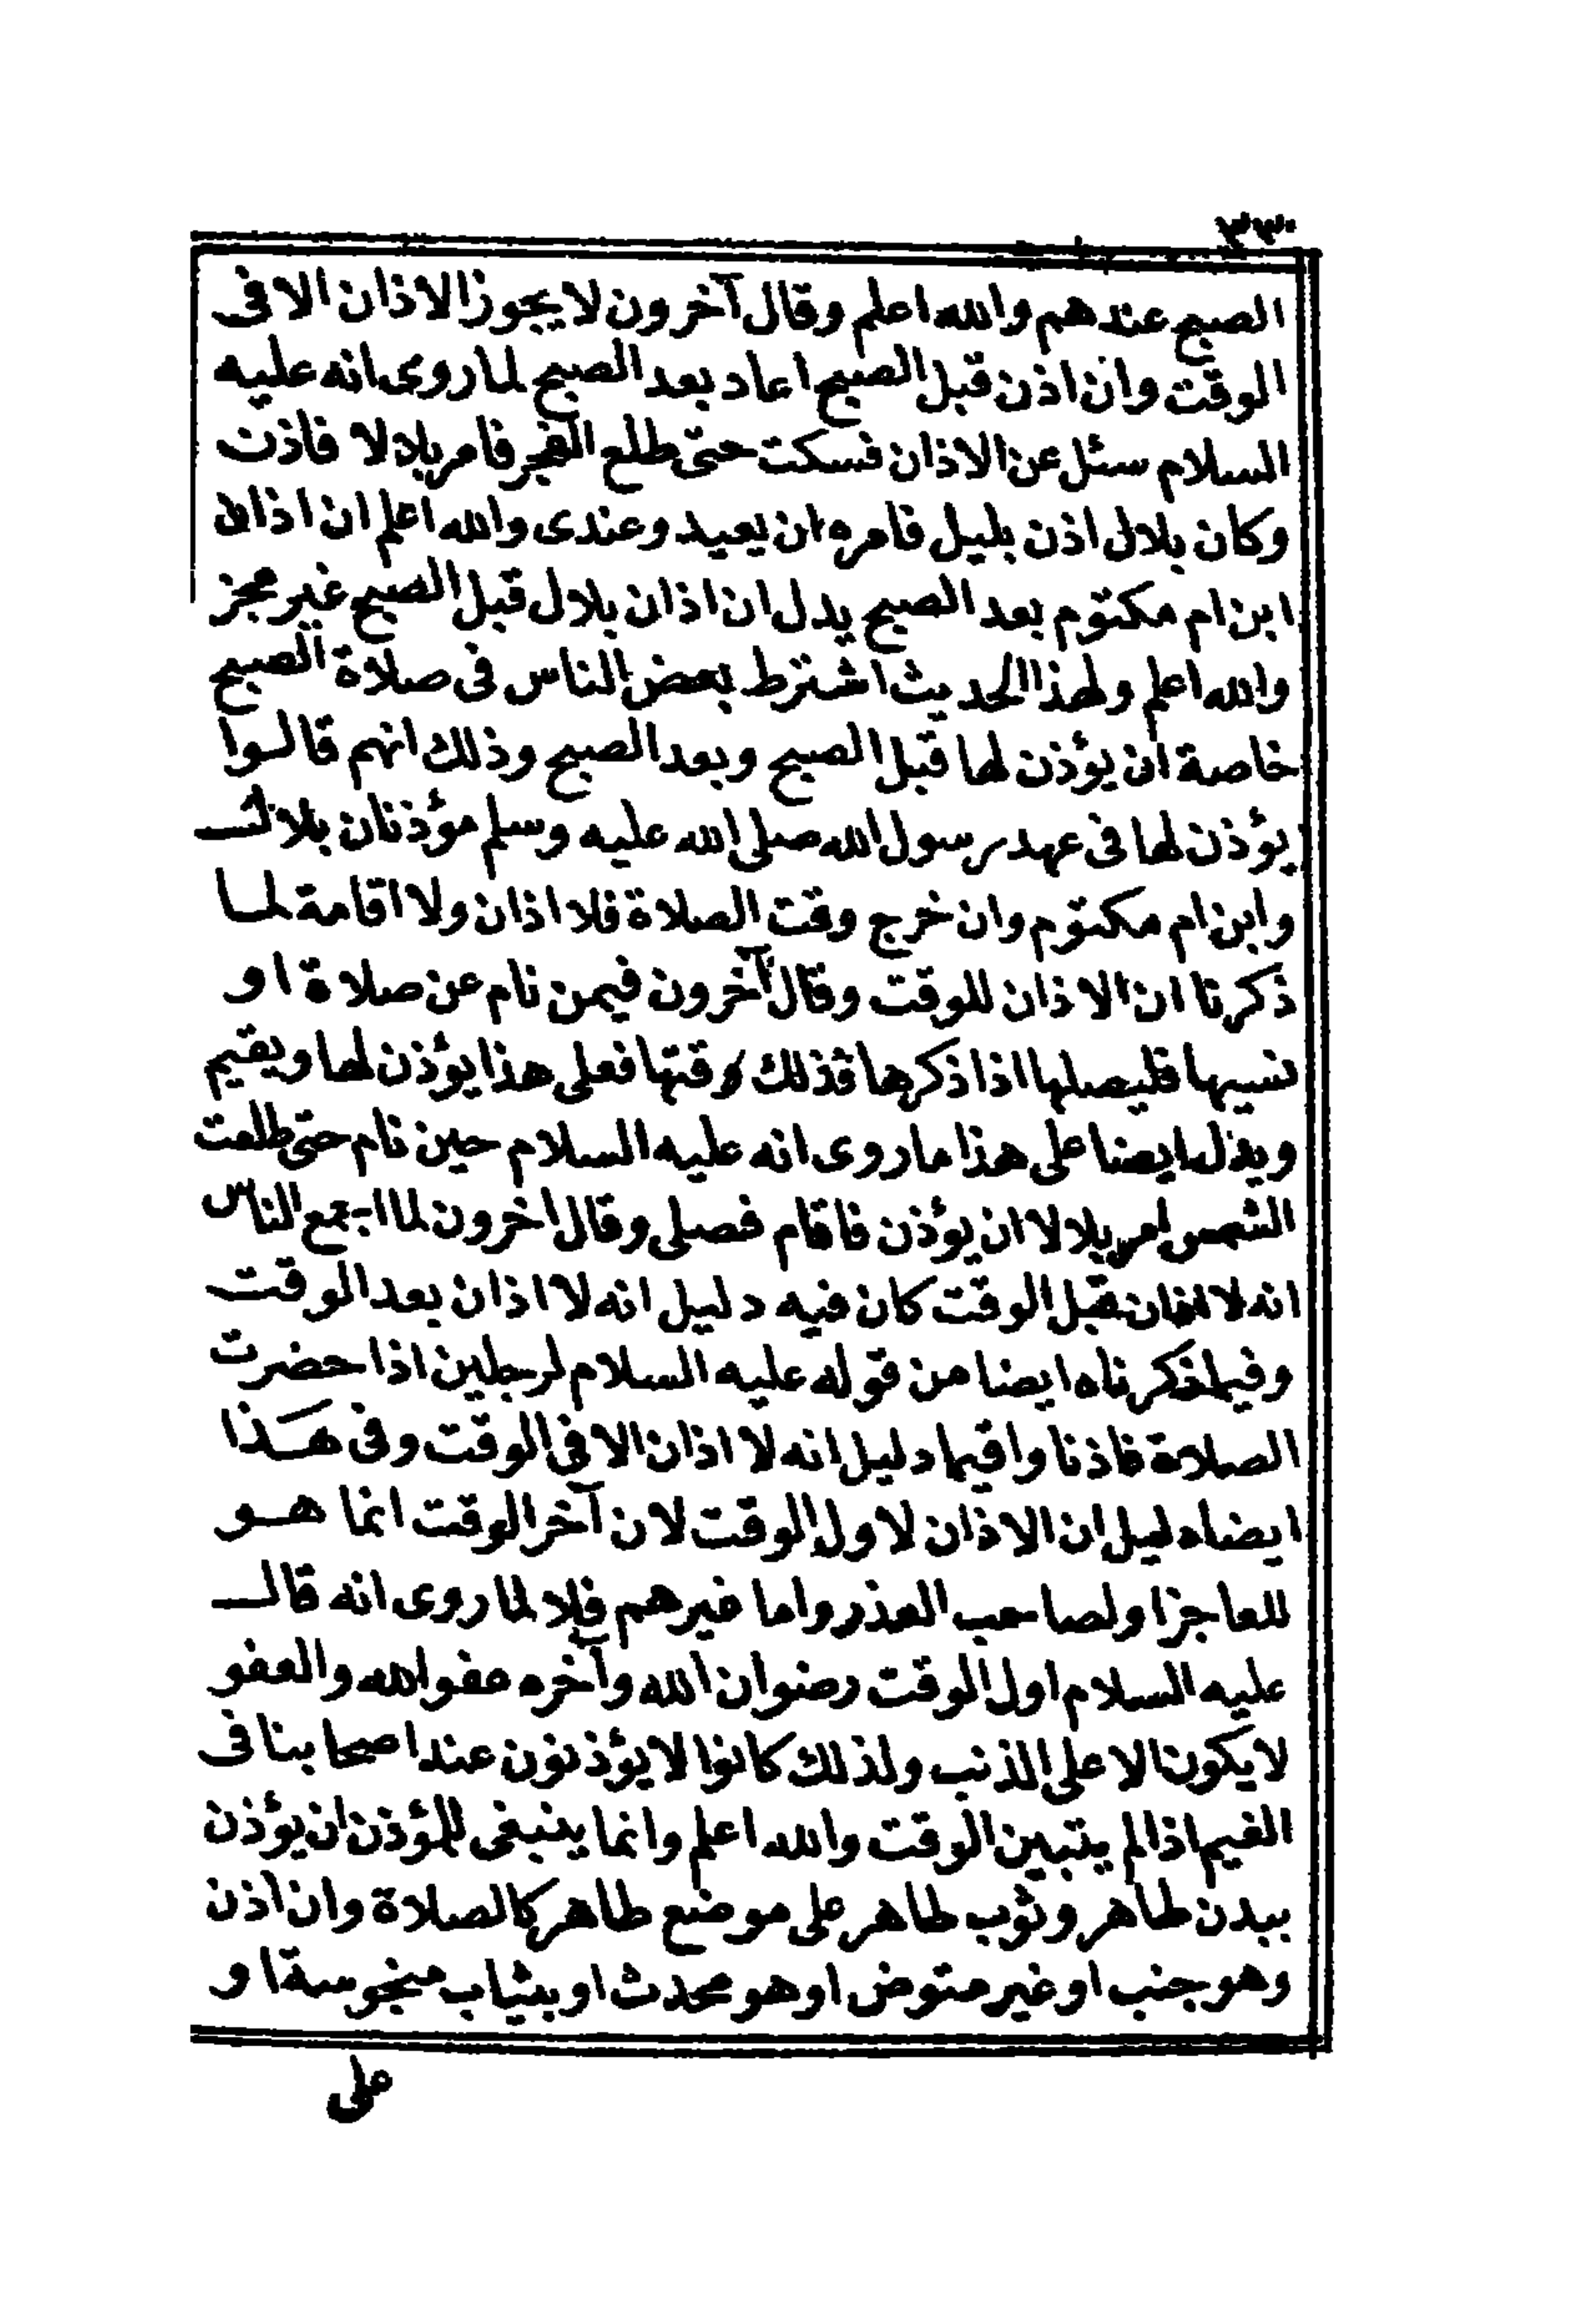 ٣٣٠
الصبح عندهم والله اعلم وقال آخرون لا يجوز الاذان الا فى
الوقت وان اذن قبل الصبح اعاد بعد الصبح لما روى انه عليه
السلام سئل عن الاذان فسكت حتى طلع الفجر فامر بلالا فاذن
وكان بلال اذن بليل فامره ان يعيد وعندى والله اعلم ان اذان
ابن ام مكتوم بعد الصبح يدل ان اذان بلال قبل الصبح غير مجز
والله اعلم ولهذا الحديث اشترط بعض الناس فى صلاة الصبح
خاصة ان يؤذن لها قبل الصبح وبعد الصبح وذلك انهم قالوا
يؤذن لها فى عهد رسول الله صلى الله عليه وسلم مؤذنان بلال
وابن ام مكتوم وان خرج وقت الصلاة فلا اذان ولا اقامة لما
ذكرنا ان الاذان للوقت وقال آخرون فيمن نام عن صلاة او
نسيها فليصلها اذا ذكرها فذلك وقتها فعلى هذا يؤذن لها ويقيم
ويدل ايضا على هذا ما روى انه عليه السلام حين نام حتى طلعت
الشمس امر بلالا ان يؤذن فاقام فصلى وقال آخرون لما اجمع الناس
انه لا اذان قبل الوقت كان فيه دليل انه لا اذان بعد الوقت
وفيما ذكرناه ايضا من قوله عليه السلام لرجلين اذا حضرت
الصلاة فاذنا واقيما دليل انه لا اذان الا فى الوقت وفى هـذا
ايضا دليل ان الاذان لاول الوقت لان آخر الوقت انما هـو
للعاجز اولصاحب العذر واما غيرهم فلا لما روى انه قال
عليه السلام اول الوقت رضوان الله وآخره عفو الله والعفو
لا يكون الا على الذنب ولذلك كانوا لا يؤذنون عند اصحابنا فى
الغيم اذا لم يتبين الوقت والله اعلم وانما ينبغى للمؤذن ان يؤذن
ببدن طاهر وثوب طاهر على موضع طاهر كالصلاة وان اذن
وهو جنب او غير متوض او هو محدث او بثياب منجوسة او
على